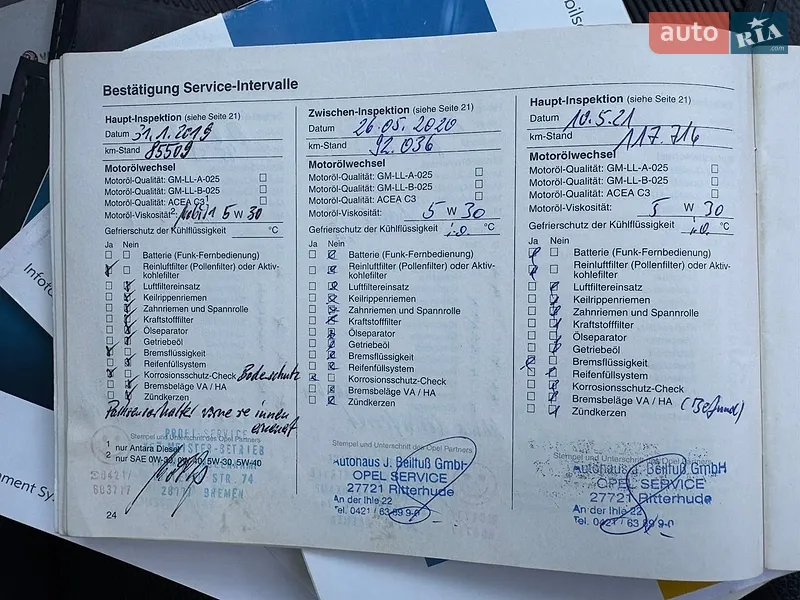 auto RIA .com
Infot
ment Sy
Bestätigung Service-Intervalle
Haupt-Inspektion (siehe Seite 21)
Datum 31.1.2019
km-Stand 85509
Motorölwechsel
Motoröl-Qualität: GM-LL-A-025
Motoröl-Qualität: GM-LL-B-025
Motoröl-Qualität: ACEA C3
Motoröl-Viskosität²: Mobil 1 5 W 30
Gefrierschutz der Kühlflüssigkeit °C
Ja Nein
Batterie (Funk-Fernbedienung)
Reinluftfilter (Pollenfilter) oder Aktiv-
kohlefilter
Luftfiltereinsatz
Keilrippenriemen
Zahnriemen und Spannrolle
Kraftstofffilter
Ölseparator
Getriebeöl
Bremsflüssigkeit
Reifenfüllsystem
Korrosionsschutz-Check Bodenschutz
Bremsbeläge VA / HA
Zündkerzen
vorne re innen
erneuert
Stempel und Unterschrift des Opel Partners
1 nur Antara Diesel
2 nur SAE 0W-30, 0W-40, 5W-30, 5W-40
STR. 74
BREMEN
24
Zwischen-Inspektion (siehe Seite 21)
Datum 26.05.2020
km-Stand 92.036
Motorölwechsel
Motoröl-Qualität: GM-LL-A-025
Motoröl-Qualität: GM-LL-B-025
Motoröl-Qualität: ACEA C3
Motoröl-Viskosität: 5 W 30
Gefrierschutz der Kühlflüssigkeit i.o. °C
Ja Nein
Batterie (Funk-Fernbedienung)
Reinluftfilter (Pollenfilter) oder Aktiv-
kohlefilter
Luftfiltereinsatz
Keilrippenriemen
Zahnriemen und Spannrolle
Kraftstofffilter
Ölseparator
Getriebeöl
Bremsflüssigkeit
Reifenfüllsystem
Korrosionsschutz-Check
Bremsbeläge VA / HA
Zündkerzen
Stempel und Unterschrift des Opel Partners
Autohaus J. Beilfuß GmbH
OPEL SERVICE
27721 Ritterhude
An der Ihle 22
Tel. 0421 / 63 89 9-0
Haupt-Inspektion (siehe Seite 21)
Datum 10.5.21
km-Stand 117.716
Motorölwechsel
Motoröl-Qualität: GM-LL-A-025
Motoröl-Qualität: GM-LL-B-025
Motoröl-Qualität: ACEA C3
Motoröl-Viskosität: 5 W 30
Gefrierschutz der Kühlflüssigkeit i.o. °C
Ja Nein
Batterie (Funk-Fernbedienung)
Reinluftfilter (Pollenfilter) oder Aktiv-
kohlefilter
Luftfiltereinsatz
Keilrippenriemen
Zahnriemen und Spannrolle
Kraftstofffilter
Ölseparator
Getriebeöl
Bremsflüssigkeit
Reifenfüllsystem
Korrosionsschutz-Check
Bremsbeläge VA / HA (Befund)
Zündkerzen
Stempel und Unterschrift des Opel
Autohaus J. Beilfuß GmbH
OPEL SERVICE
27721 Ritterhude
An der Ihle 22
Tel. 0421 / 63 89 9-0